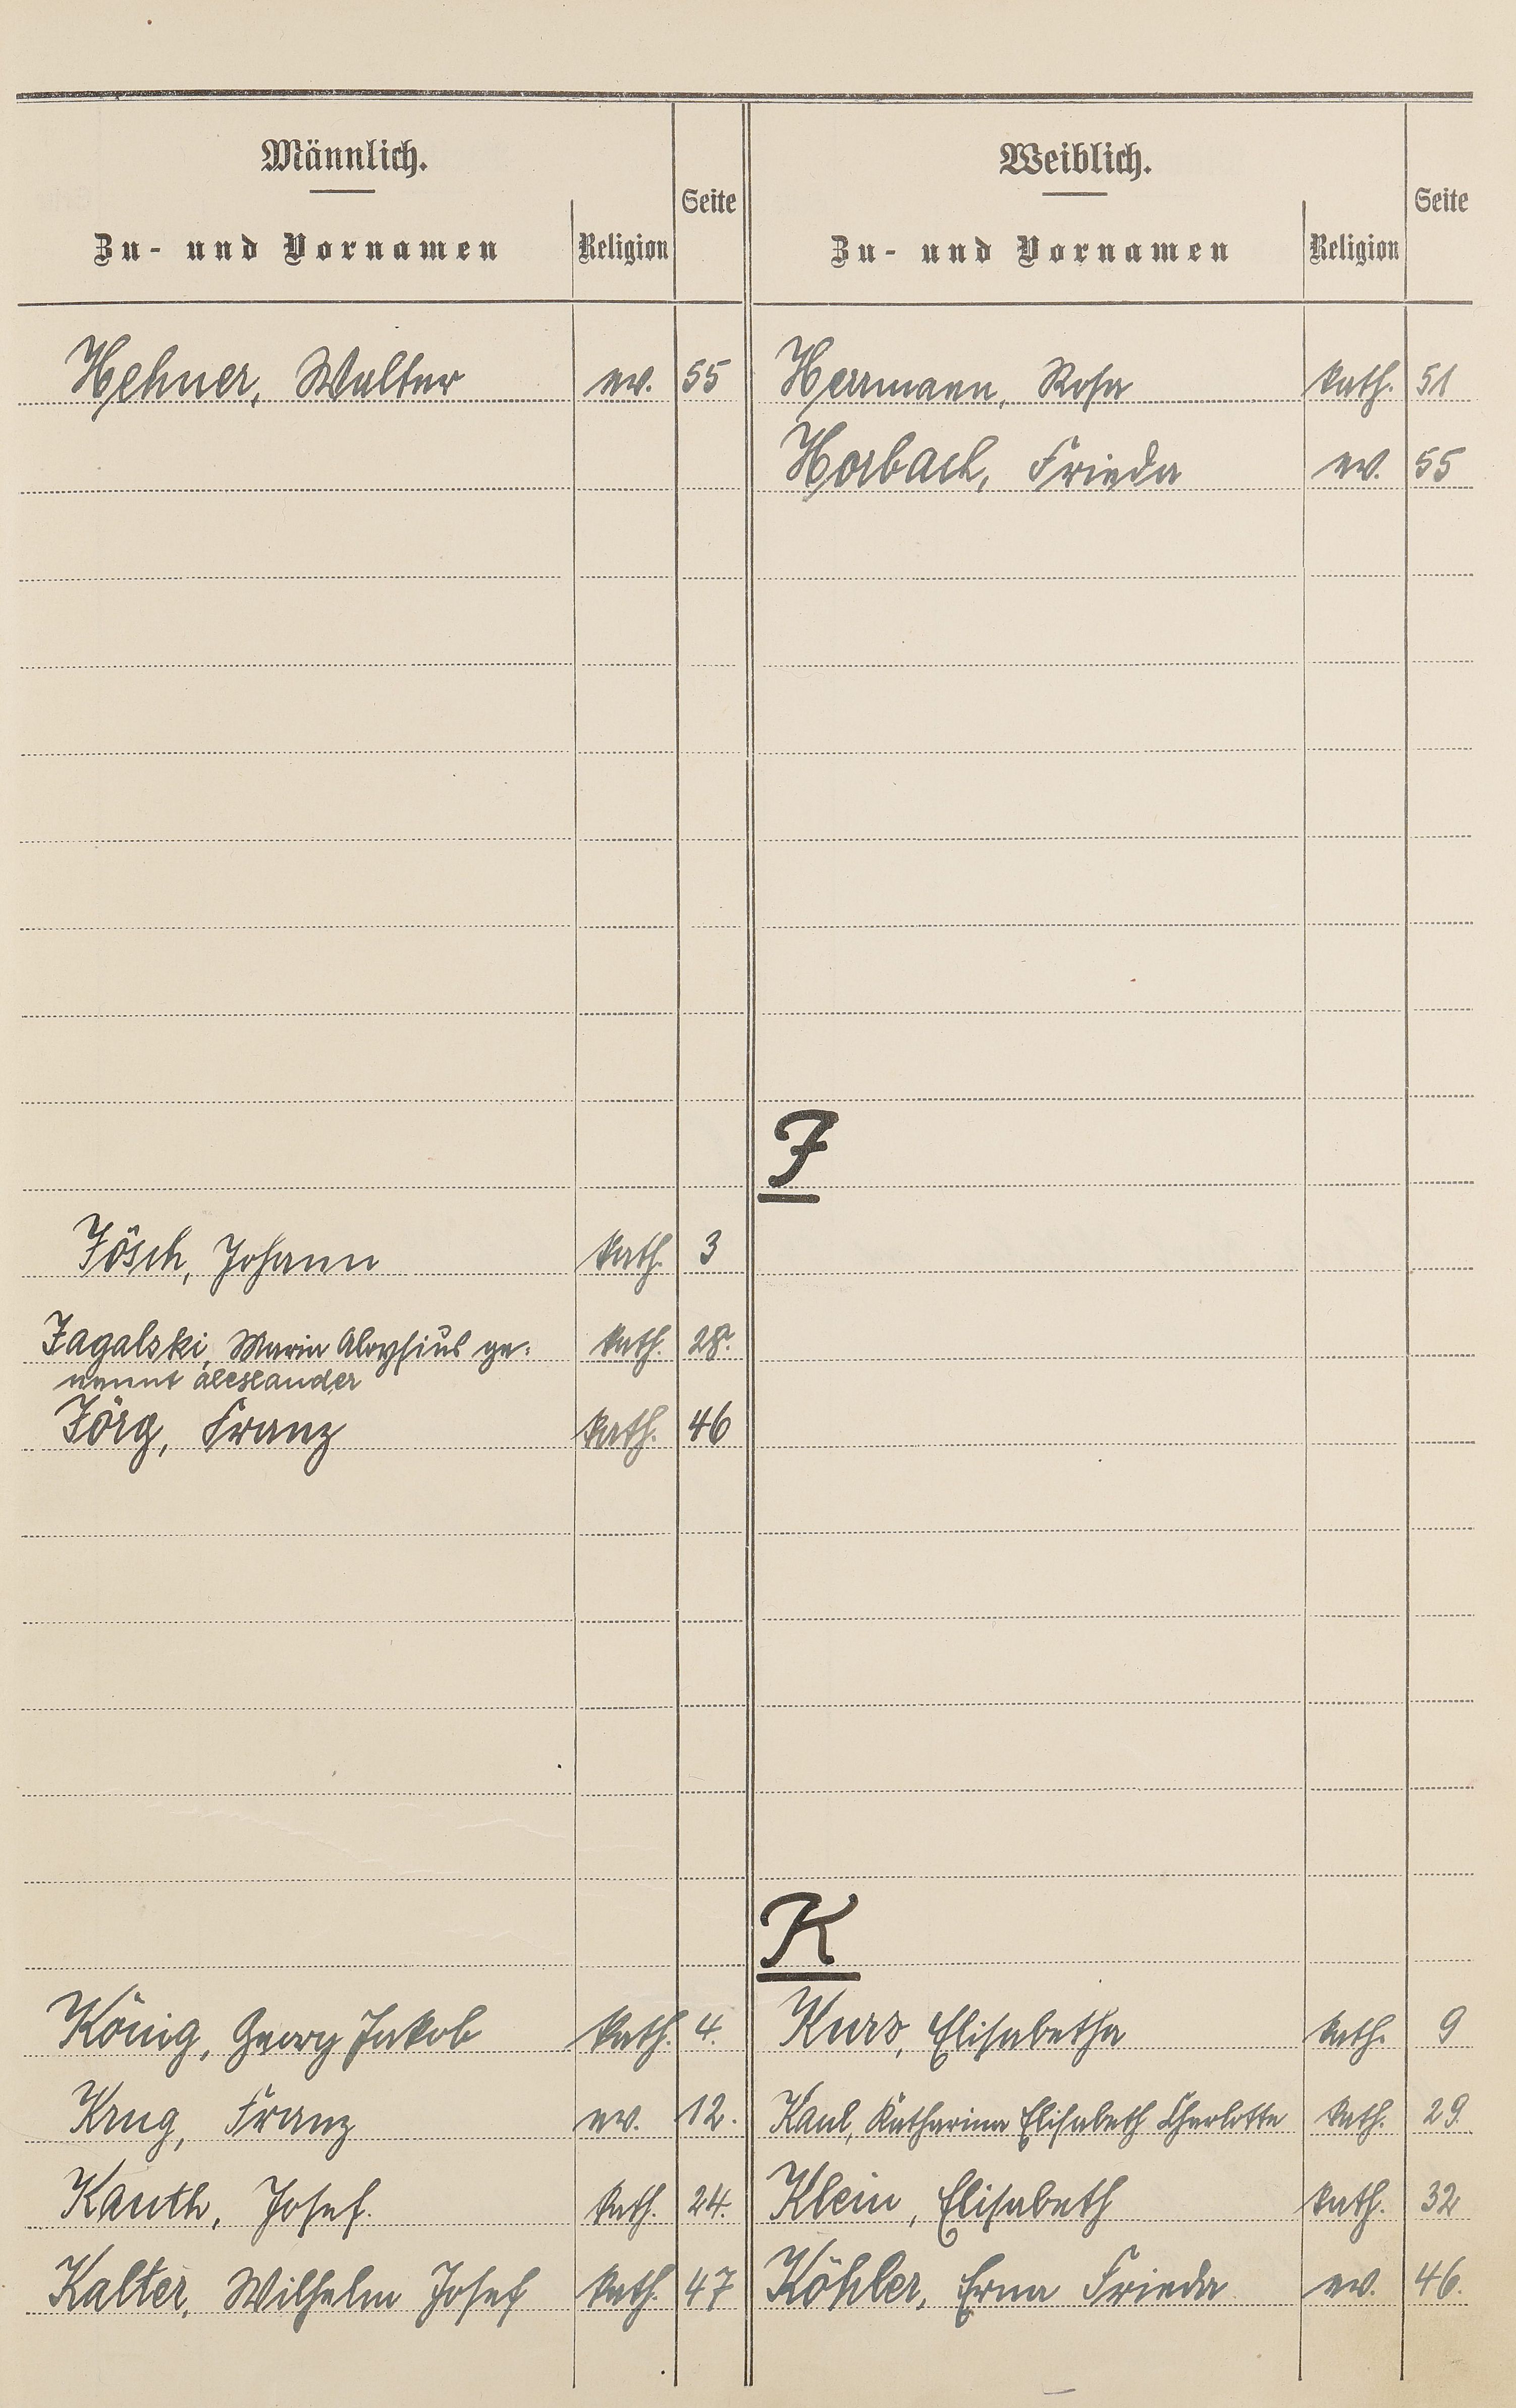 Männlich.
Zu- und Vornamen Religion Seite
Weiblich.
Zu- und Vornamen Religion Seite
Hehner, Walter ev. 55 Herrmann, Rosa kath. 51
Horbach, Frieda ev. 55
J
Jösch, Johann kath. 3
Jagalski, Maria Aloysius ge- kath. 28.
nannt Alexander
Jörg, Franz kath. 46
K
König, Georg Jakob kath. 4. Kurs, Elisabetha kath. 9
Krug, Franz ev. 12. Kaul, Katharina Elisabeth Charlotte kath. 29.
Kauth, Josef. kath. 24. Klein, Elisabeth kath. 32
Kalter, Wilhelm Josef kath. 47 Köhler, Erna Frieda ev. 46.